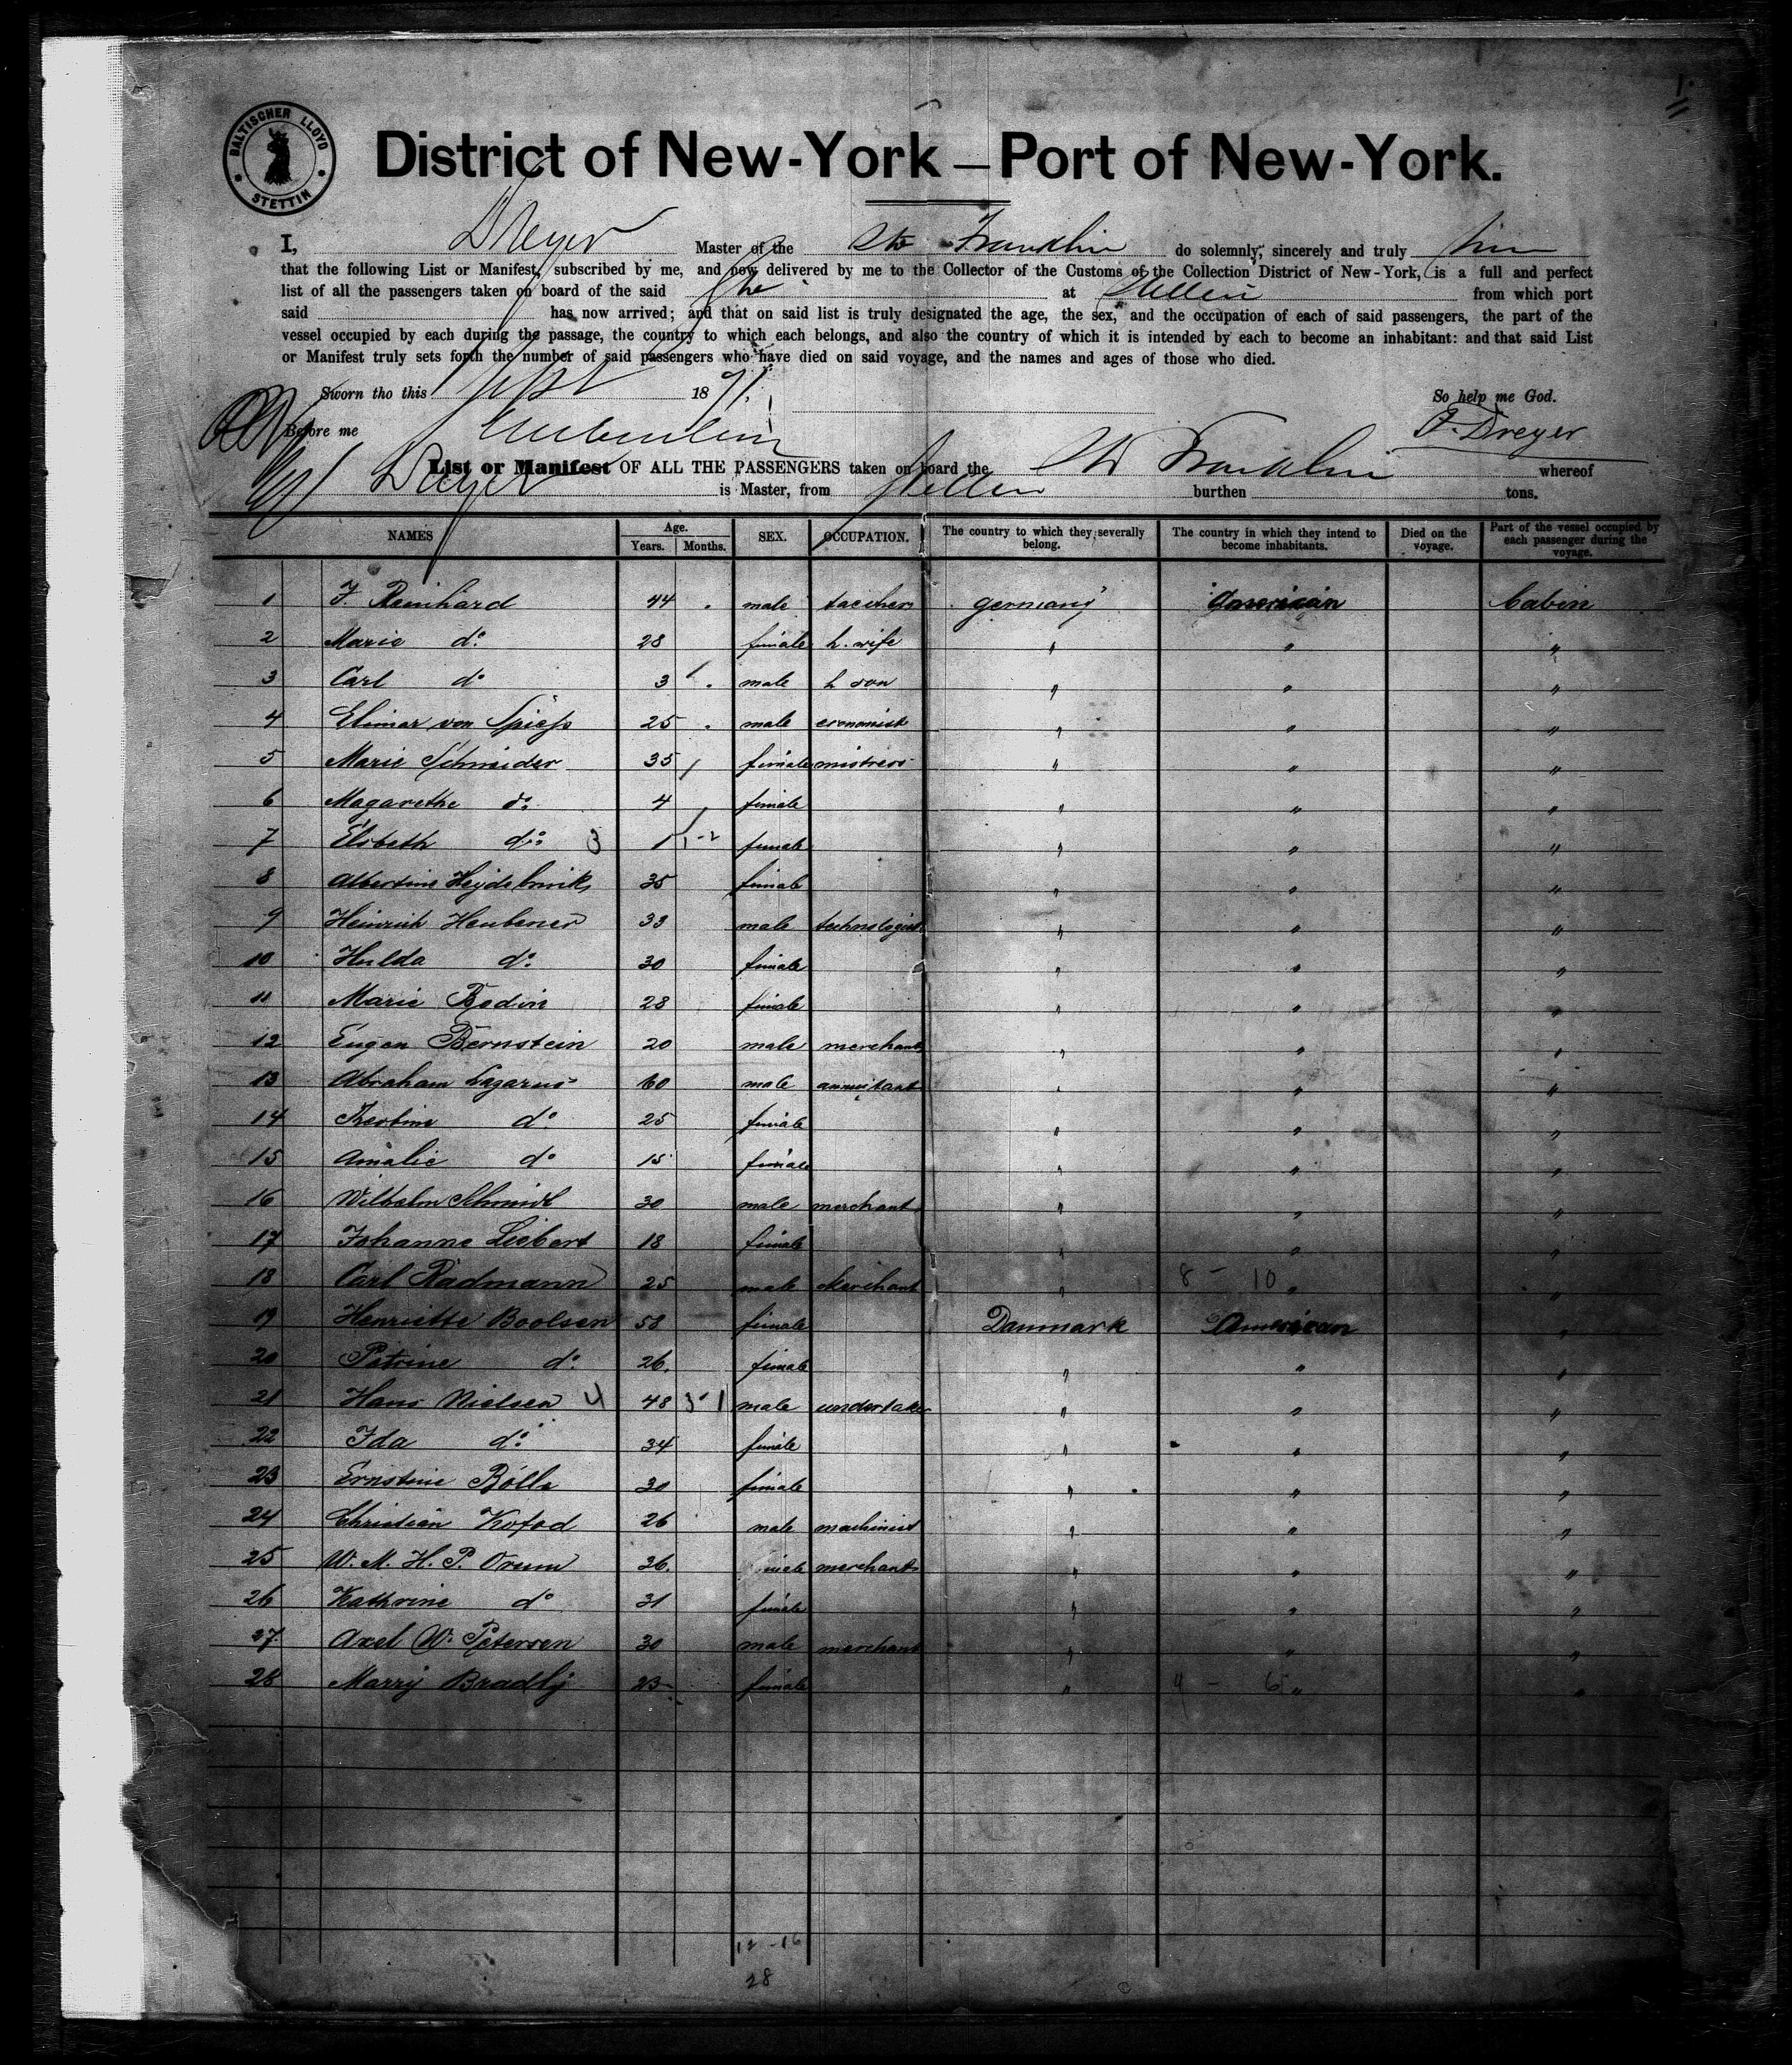 1.
BALTISCHER LLOYD
STETTIN
District of New-York — Port of New-York.
I, Dreyer Master of the Str Franklin do solemnly, sincerely and truly
that the following List or Manifest, subscribed by me, and now delivered by me to the Collector of the Customs of the Collection District of New-York, is a full and perfect
list of all the passengers taken on board of the said at Stettin from which port
said has now arrived; and that on said list is truly designated the age, the sex, and the occupation of each of said passengers, the part of the
vessel occupied by each during the passage, the country to which each belongs, and also the country of which it is intended by each to become an inhabitant: and that said List
or Manifest truly sets forth the number of said passengers who have died on said voyage, and the names and ages of those who died.
Sworn tho this 1871. So help me God.
Before me F. Dreyer
List or Manifest OF ALL THE PASSENGERS taken on board the Str Franklin whereof
Dreyer is Master, from Stettin burthen tons.
NAMES Age. Years. Months. SEX. OCCUPATION. The country to which they severally belong. The country in which they intend to become inhabitants. Died on the voyage. Part of the vessel occupied by each passenger during the voyage.
1 F. Reinhard 44 male germany American Cabin
2 Marie do 28 female h. wife " " "
3 Carl do 3 male h son " " "
4 Elimar von Spiess 25 male economist " " "
5 Marie Schneider 35 female mistress " " "
6 Magarethe do 4 female " " "
7 Elsbeth do 3 1 1-2 female " " "
8 Albertine Heydebrink 35 female " " "
9 Heinrich Heubener 33 male technologist " " "
10 Hulda do 30 female " " "
11 Marie Bodin 28 female " " "
12 Eugen Bernstein 20 male merchant " " "
13 Abraham Lazarus 60 male annuitant " " "
14 do 25 female " " "
15 Amalie do 15 female " " "
16 Wilhelm Schmidt 30 male merchant " " "
17 Johanne Liebert 18 female " " "
18 Carl Radmann 25 male Merchant " 8 - 10 " "
19 Henriette Boolsen 58 female Danmark American "
20 Petrine do 26. female " " "
21 Hans Nielsen 4 48 3-1 male undertaker " " "
22 Ida do 34 female " " "
23 Ernstine Bölle 30 female " " "
24 Christian Kofod 26 male machinist " " "
25 W. M. H. P. Orum 36. male merchant " " "
26 Kathrine do 31 female " " "
27. Axel W. Petersen 30 male merchant " " "
28 Marry Bradly 23 female " 4 - 6 " "
12 - 16
28